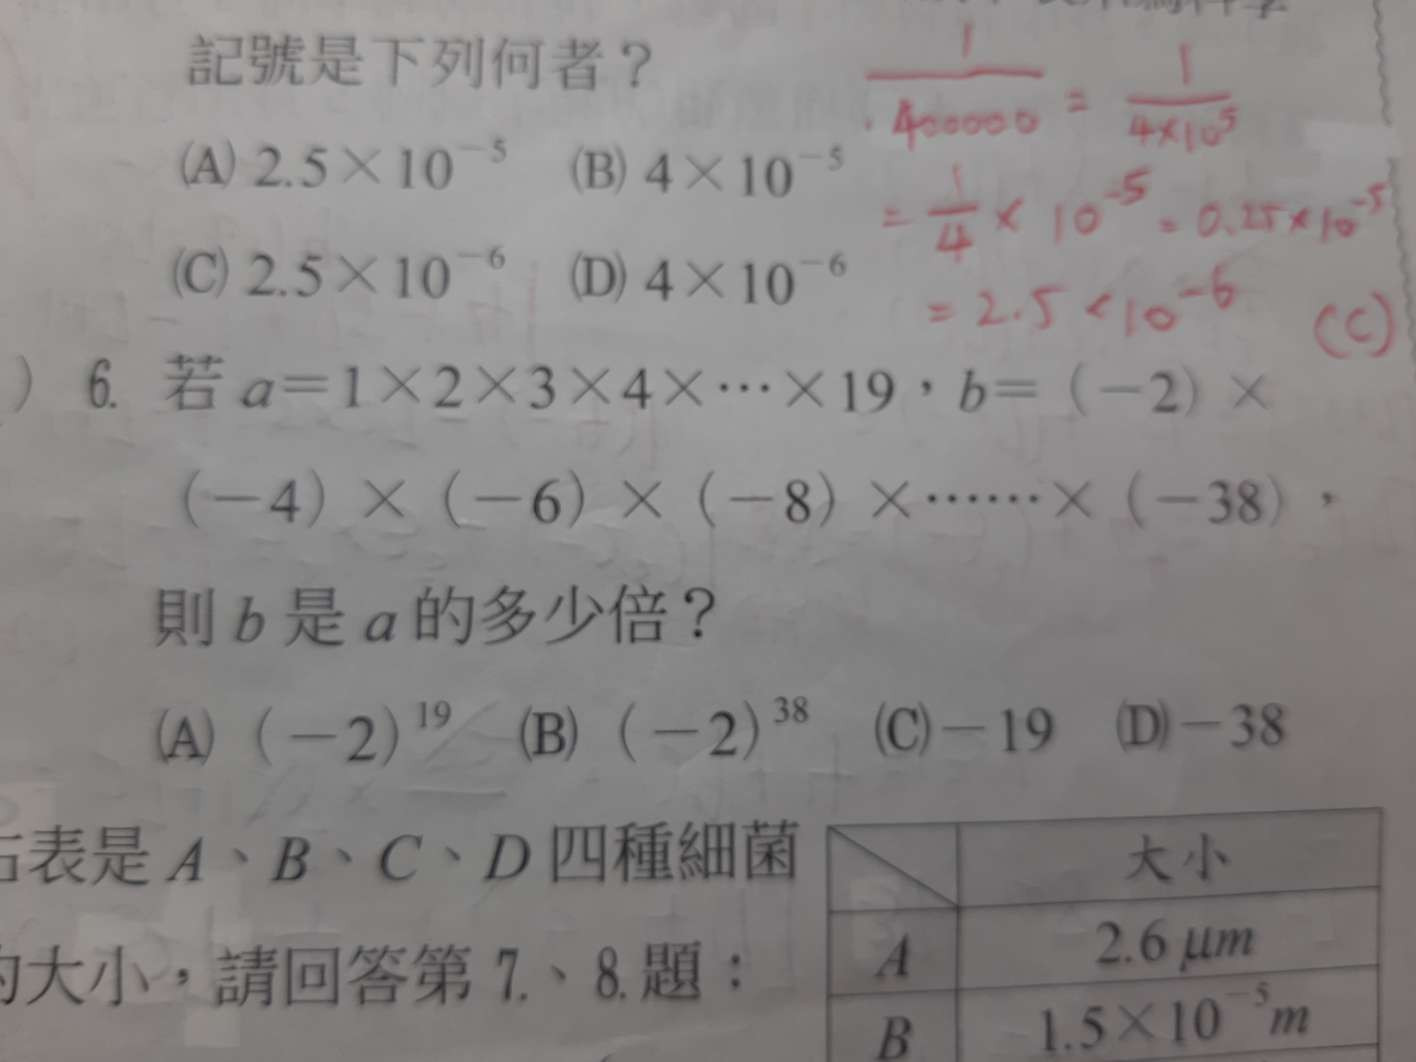 記號是下列何者？
(A) 2.5×10⁻⁵ (B) 4×10⁻⁵
(C) 2.5×10⁻⁶ (D) 4×10⁻⁶
1/400000 = 1/4×10⁵
= 1/4 × 10⁻⁵ = 0.25×10⁻⁵
= 2.5×10⁻⁶ (C)
) 6. 若 a=1×2×3×4×⋯×19，b=（-2）×
（-4）×（-6）×（-8）×⋯⋯×（-38），
則 b 是 a 的多少倍？
(A)（-2）¹⁹ (B)（-2）³⁸ (C)-19 (D)-38
右表是 A、B、C、D 四種細菌
的大小，請回答第 7.、8. 題：
大小
A 2.6 μm
B 1.5×10⁻⁵m